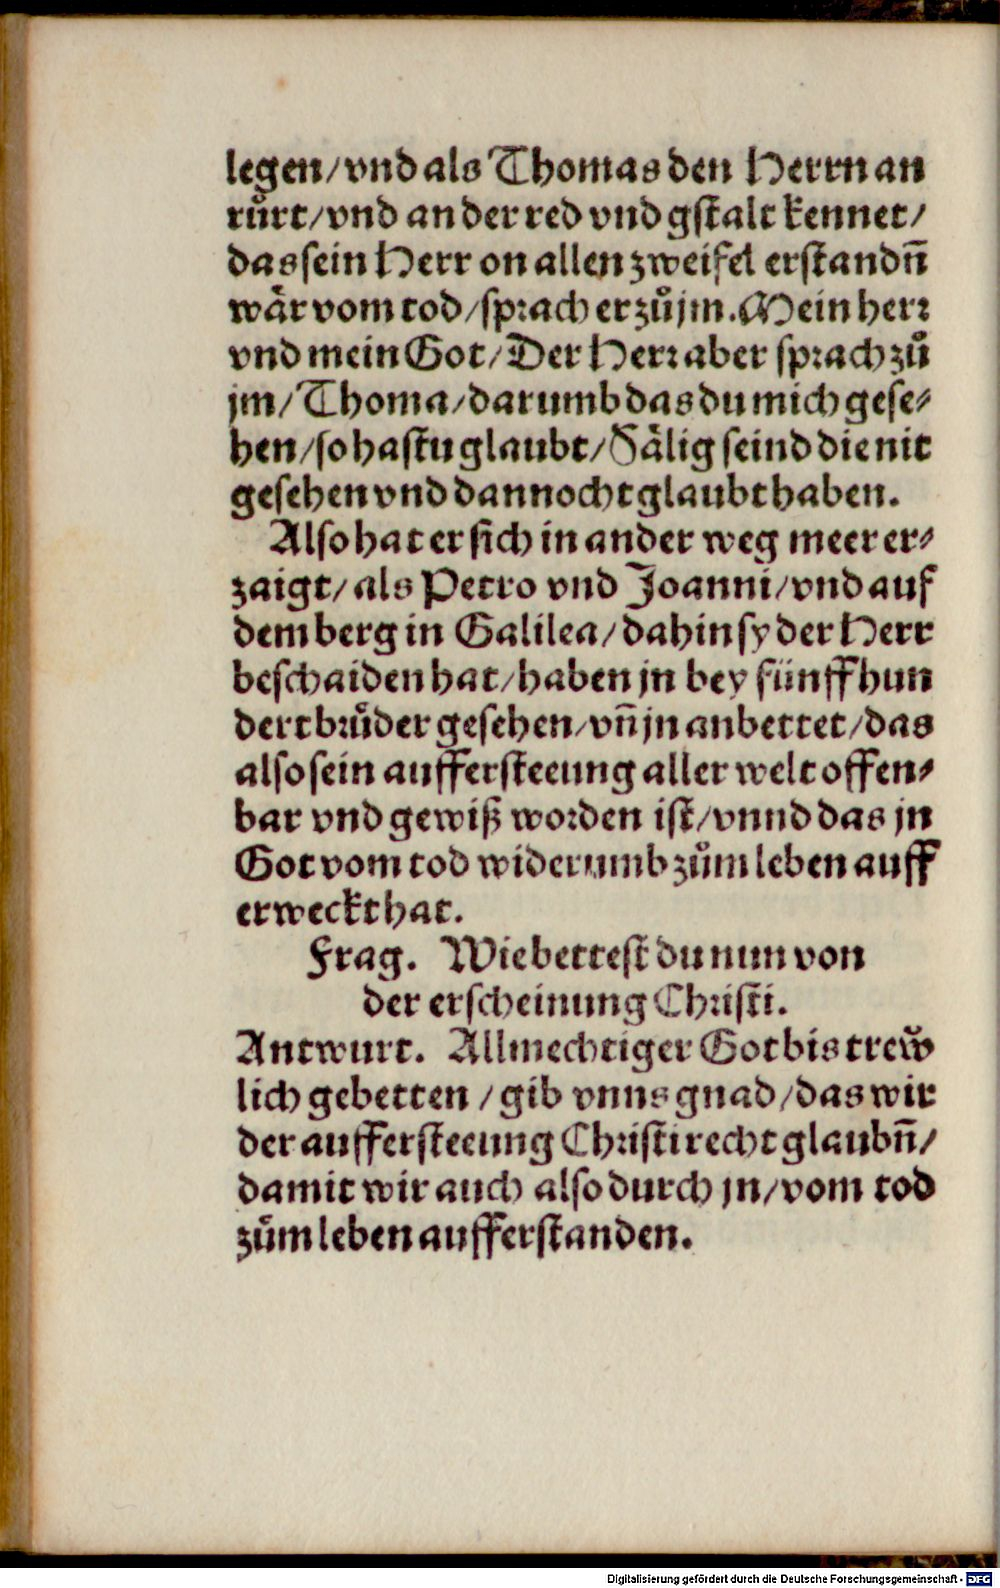 legen/vnd als Thomas den Herrn an
ruͤrt/vnd an der red vnd gstalt kennet/
das sein Herr on allen zweifel erstandn̄
waͤr vom tod/sprach er zuͦ jm. Mein herr
vnd mein Got/Der Herr aber sprach zuͦ
jm/Thoma/darumb das du mich gese⸗
hen/so hastu glaubt/Saͤlig seind die nit
gesehen vnd dannocht glaubt haben.
Also hat er sich in ander weg meer er⸗
zaigt/als Petro vnd Joanni/vnd auf
dem berg in Galilea/dahin sy der Herr
beschaiden hat/haben jn bey fünff hun
dert bruͤder gesehen/vn̄ jn anbettet/das
also sein auffersteeung aller welt offen⸗
bar vnd gewiß worden ist/vnnd das jn
Got vom tod widerumb zuͦm leben auff
erweckt hat.
Frag. Wie bettest du nun von
der erscheinung Christi.
Antwurt. Allmechtiger Got bis treẘ
lich gebetten /gib vnns gnad/das wir
der auffersteeung Christi recht glaubn̄/
damit wir auch also durch jn/vom tod
zuͦm leben aufferstanden.
Digitalisierung gefördert durch die Deutsche Forschungsgemeinschaft - DFG